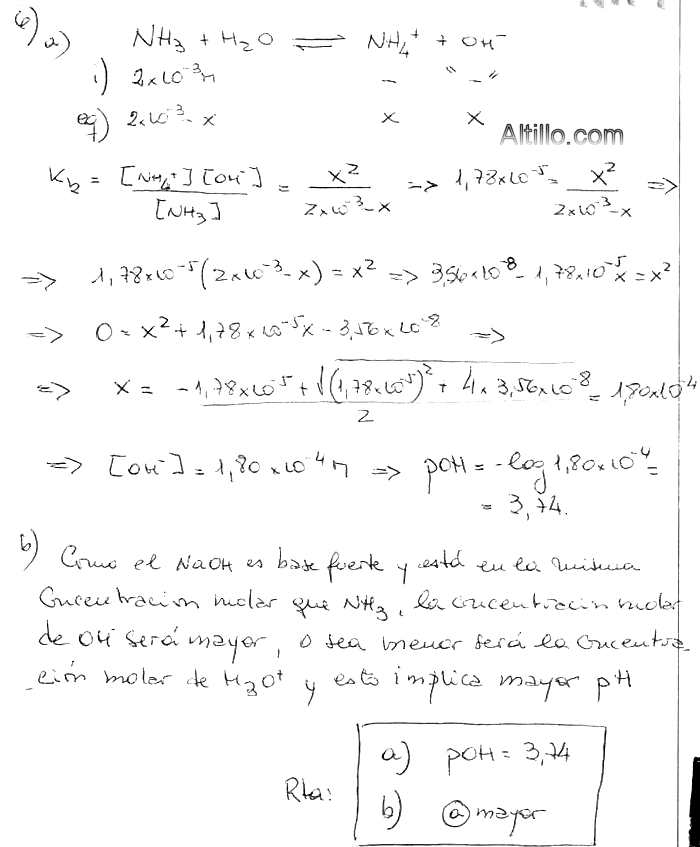 6) a) NH3 + H2O ⇌ NH4+ + OH-
i) 2×10-3 M - " - "
eq) 2×10-3 - x x x
Altillo.com
Kb = [NH4+][OH-] / [NH3] = x2 / 2×10-3-x => 1,78×10-5 = x2 / 2×10-3-x =>
=> 1,78×10-5 (2×10-3-x) = x2 => 3,56×10-8 - 1,78×10-5x = x2
=> 0 = x2 + 1,78×10-5x - 3,56×10-8 =>
=> x = -1,78×10-5 + √(1,78×10-5)2 + 4 × 3,56×10-8 / 2 = 1,80×10-4
=> [OH-] = 1,80×10-4 M => pOH = -log 1,80×10-4 =
= 3,74.
b) Como el NaOH es base fuerte y está en la misma
concentración molar que NH3, la concentración molar
de OH- será mayor, o sea menor será la concentra-
-ción molar de H3O+ y esto implica mayor pH
Rta:
a) pOH = 3,74
b) ⓐ mayor